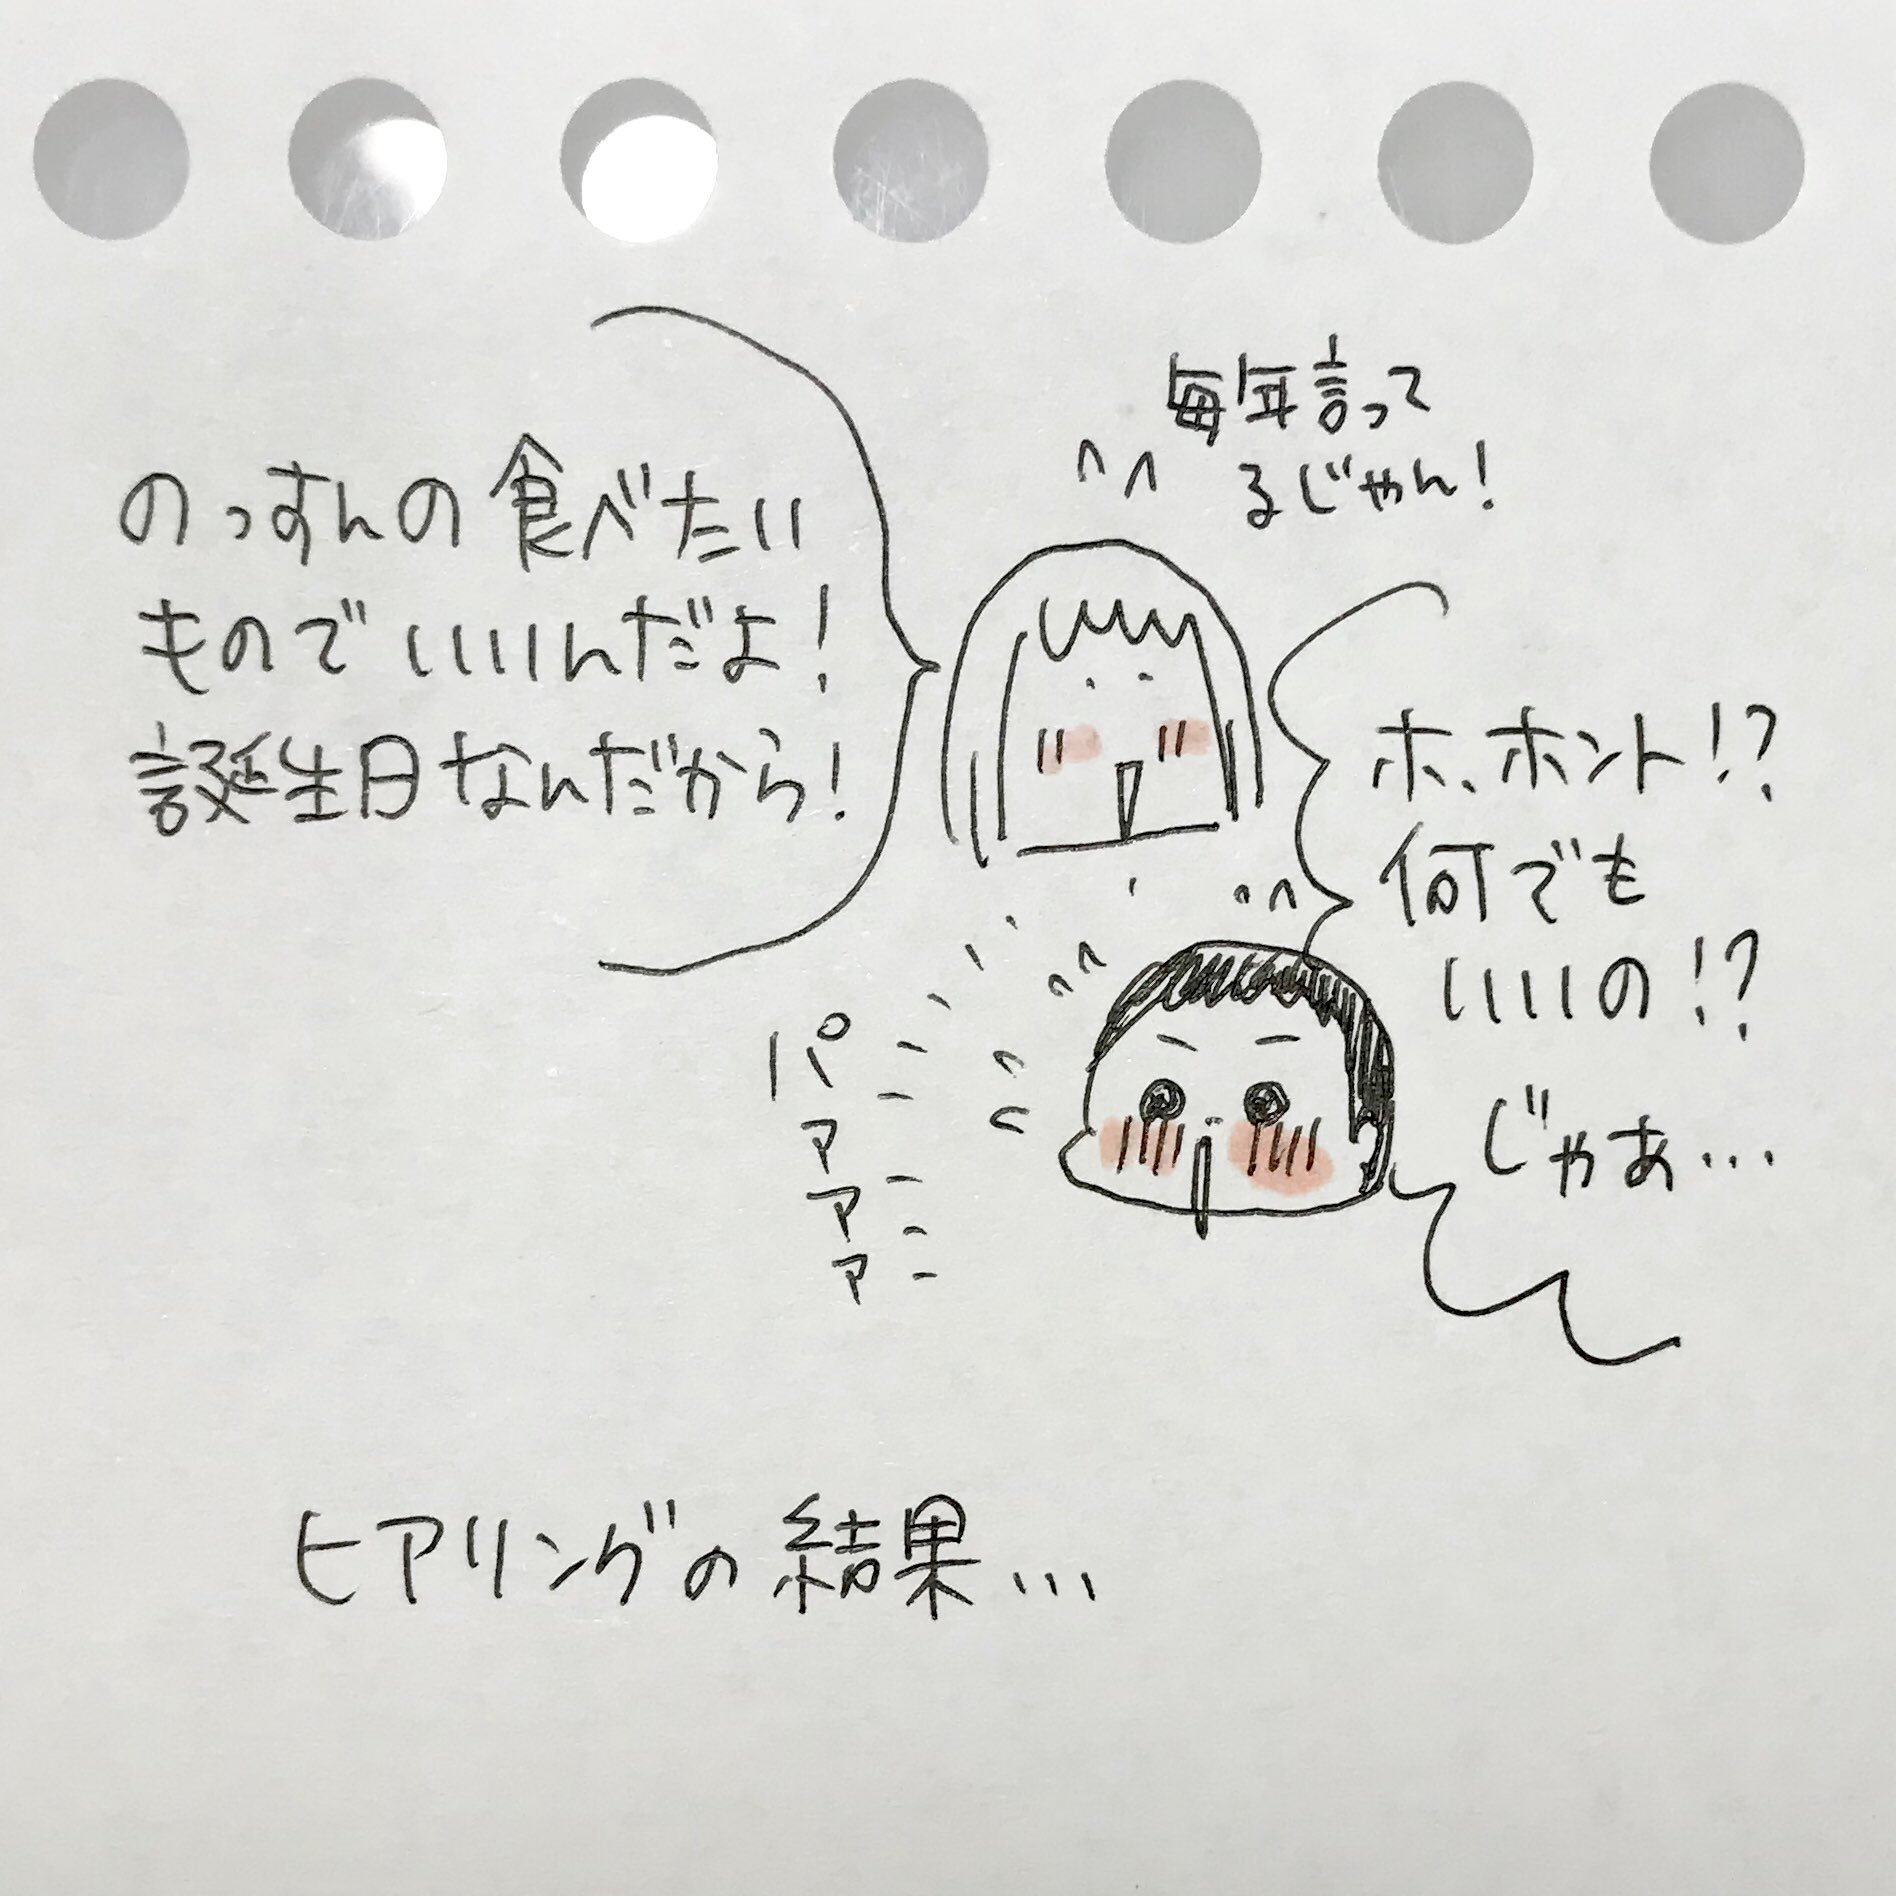 毎年言って
るじゃん!
のっすんの食べたい
ものでいいんだよ!
誕生日なんだから!
ホ、ホント!?
何でも
いいの!?
じゃあ…
パアアア
ヒアリングの結果…